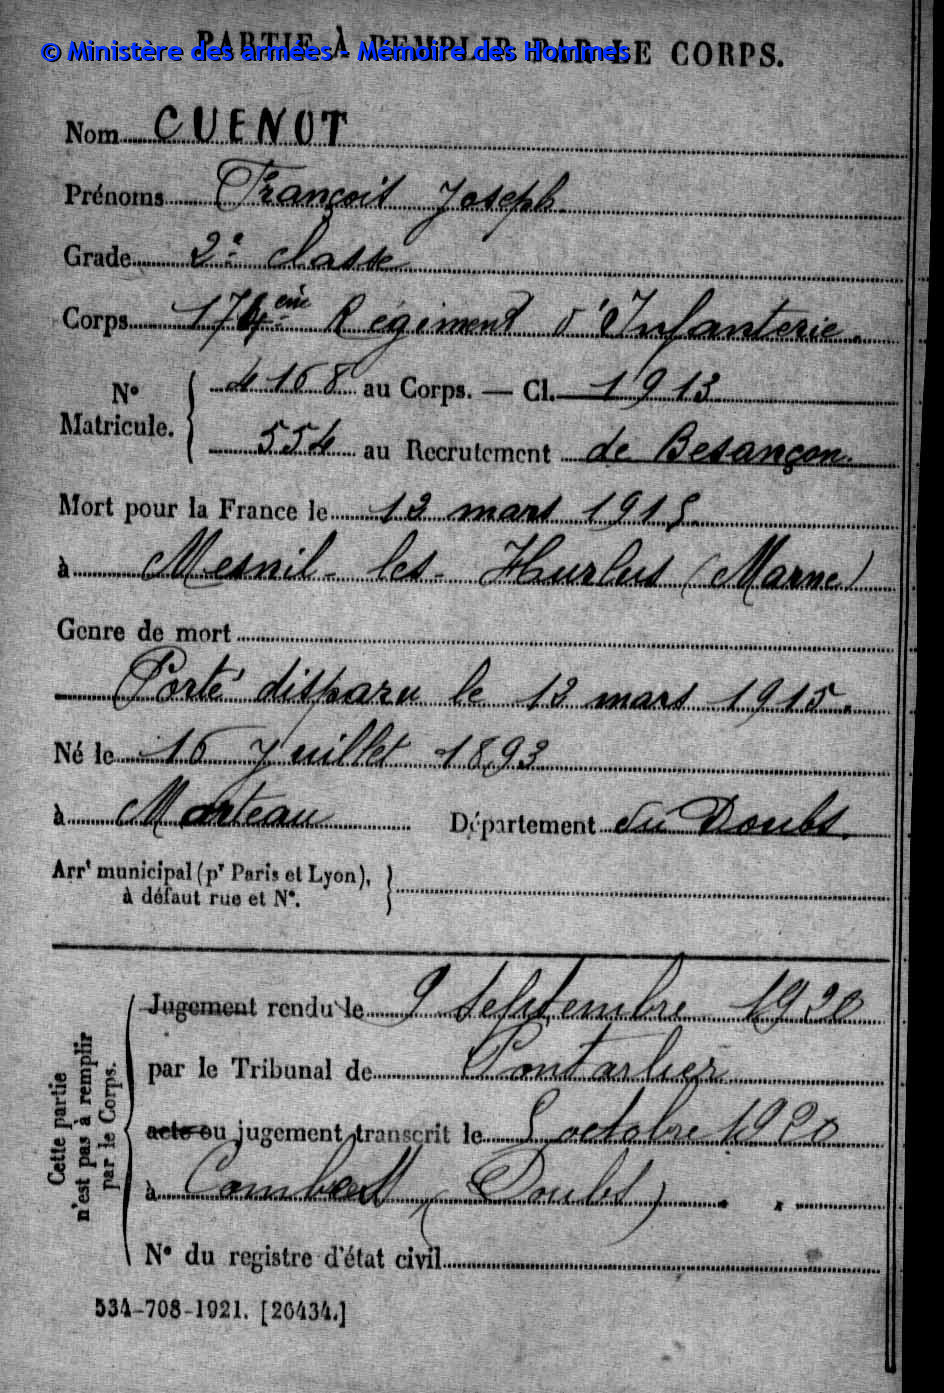 PARTIE À REMPLIR PAR LE CORPS.
© Ministère des armées - Mémoire des Hommes
Nom CUENOT
Prénoms François Joseph
Grade 2e classe
Corps 174ème Régiment d'Infanterie.
N° Matricule. { 4168 au Corps. — Cl. 1913
554 au Recrutement de Besançon.
Mort pour la France le 12 mars 1915.
à Mesnil-les-Hurlus (Marne)
Genre de mort
Porté disparu le 12 mars 1915.
Né le 16 Juillet 1893
à Morteau Département du Doubs.
Arrt municipal (pr Paris et Lyon),
à défaut rue et N°.
Cette partie
n'est pas à remplir
par le Corps.
Jugement rendu le 9 Septembre 1920
par le Tribunal de Pontarlier
acte ou jugement transcrit le 5 octobre 1920
à (Doubs)
N° du registre d'état civil
534-708-1921. [26434.]